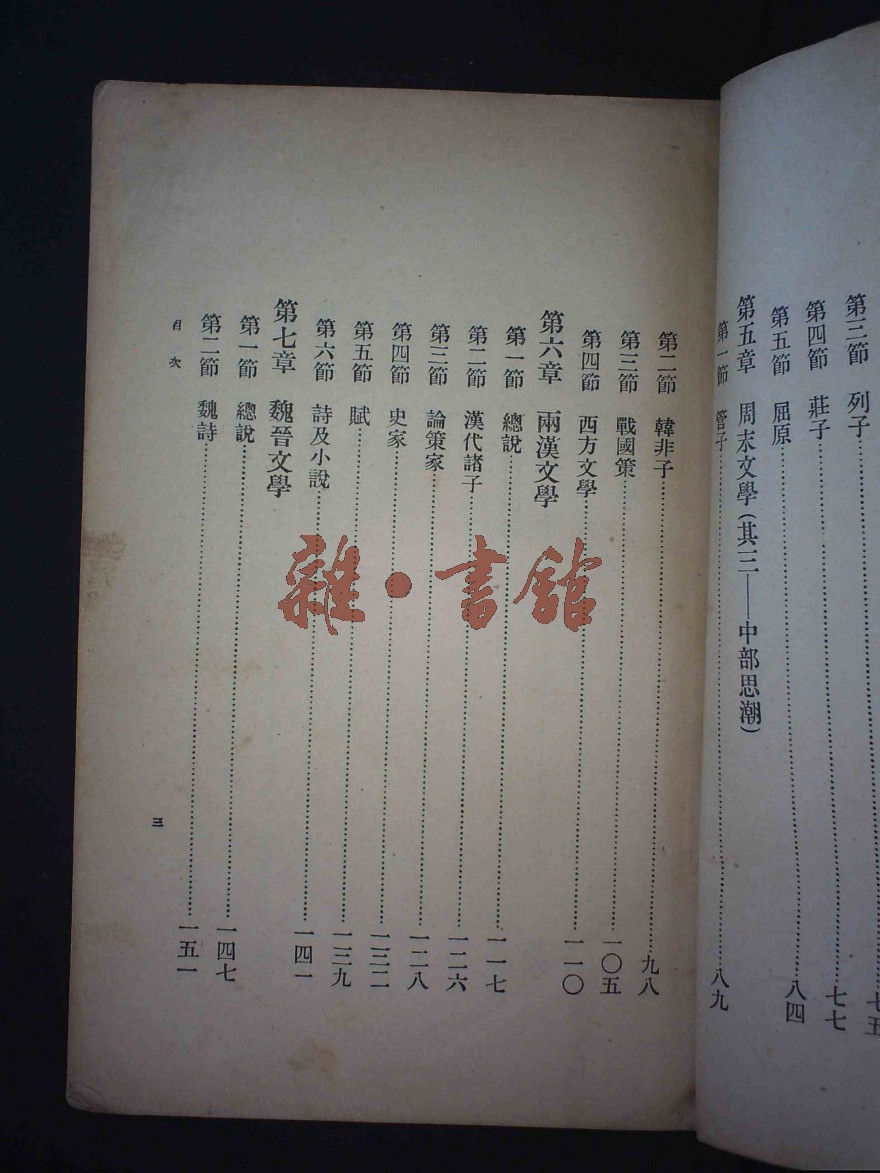 第三節　列子……七五
第四節　莊子……七七
第五節　屈原……八四
第五章　周末文學（其三——中部思潮）
第一節　管子……八九
第二節　韓非子……九八
第三節　戰國策……一〇五
第四節　西方文學……一一〇
第六章　兩漢文學
第一節　總說……一一七
第二節　漢代諸子……一二六
第三節　論策家……一二八
第四節　史家……一三二
第五節　賦……一三九
第六節　詩及小說……一四一
第七章　魏晉文學
第一節　總說……一四七
第二節　魏詩……一五一
目次
三
雜·書館